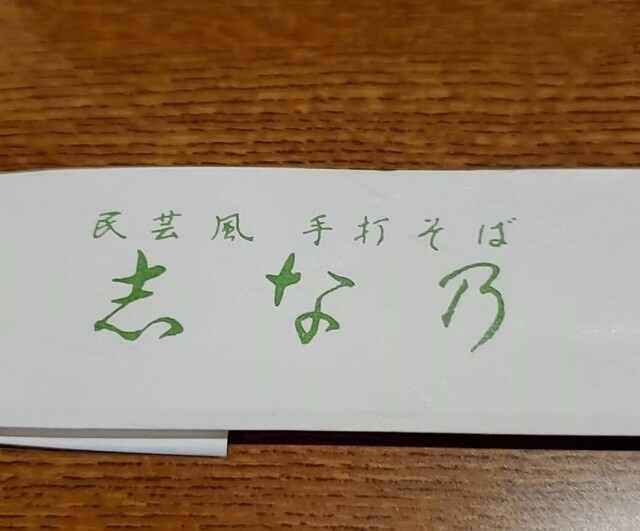 民芸風 手打そば
志な乃